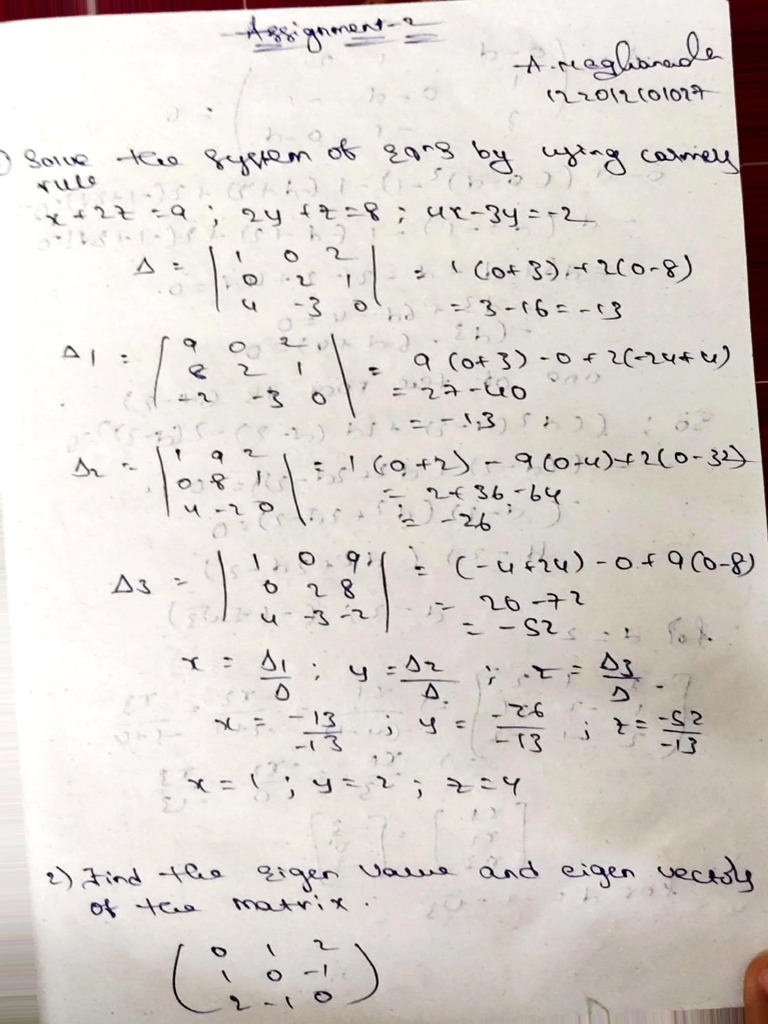 Assignment-2
A. Meghanada
122012101027
1) Solve the system of eqns by using carmels
rule
x+2z=9 ; 2y+z=8 ; 4x-3y=-2
Δ = | 1 0 2 | = 1(0+3)+2(0-8)
| 0 2 1 |
| 4 -3 0 | = 3-16=-13
Δ1 = | 9 0 2 | = 9(0+3)-0+2(-24+4)
| 8 2 1 | = 27-40
| -2 -3 0 | = -13
Δ2 = | 1 9 2 | = 1(0+2)-9(0-4)+2(0-32)
| 0 8 1 | = 2+36-64
| 4 -2 0 | = -26
Δ3 = | 1 0 9 | = (-4+24)-0+9(0-8)
| 0 2 8 | = 20-72
| 4 -3 -2 | = -52
x = Δ1/Δ ; y = Δ2/Δ ; z = Δ3/Δ
x = -13/-13 ; y = -26/-13 ; z = -52/-13
x=1 ; y=2 ; z=4
2) Find the eigen value and eigen vectors
of the matrix.
( 0 1 2 )
( 1 0 -1 )
( 2 -1 0 )